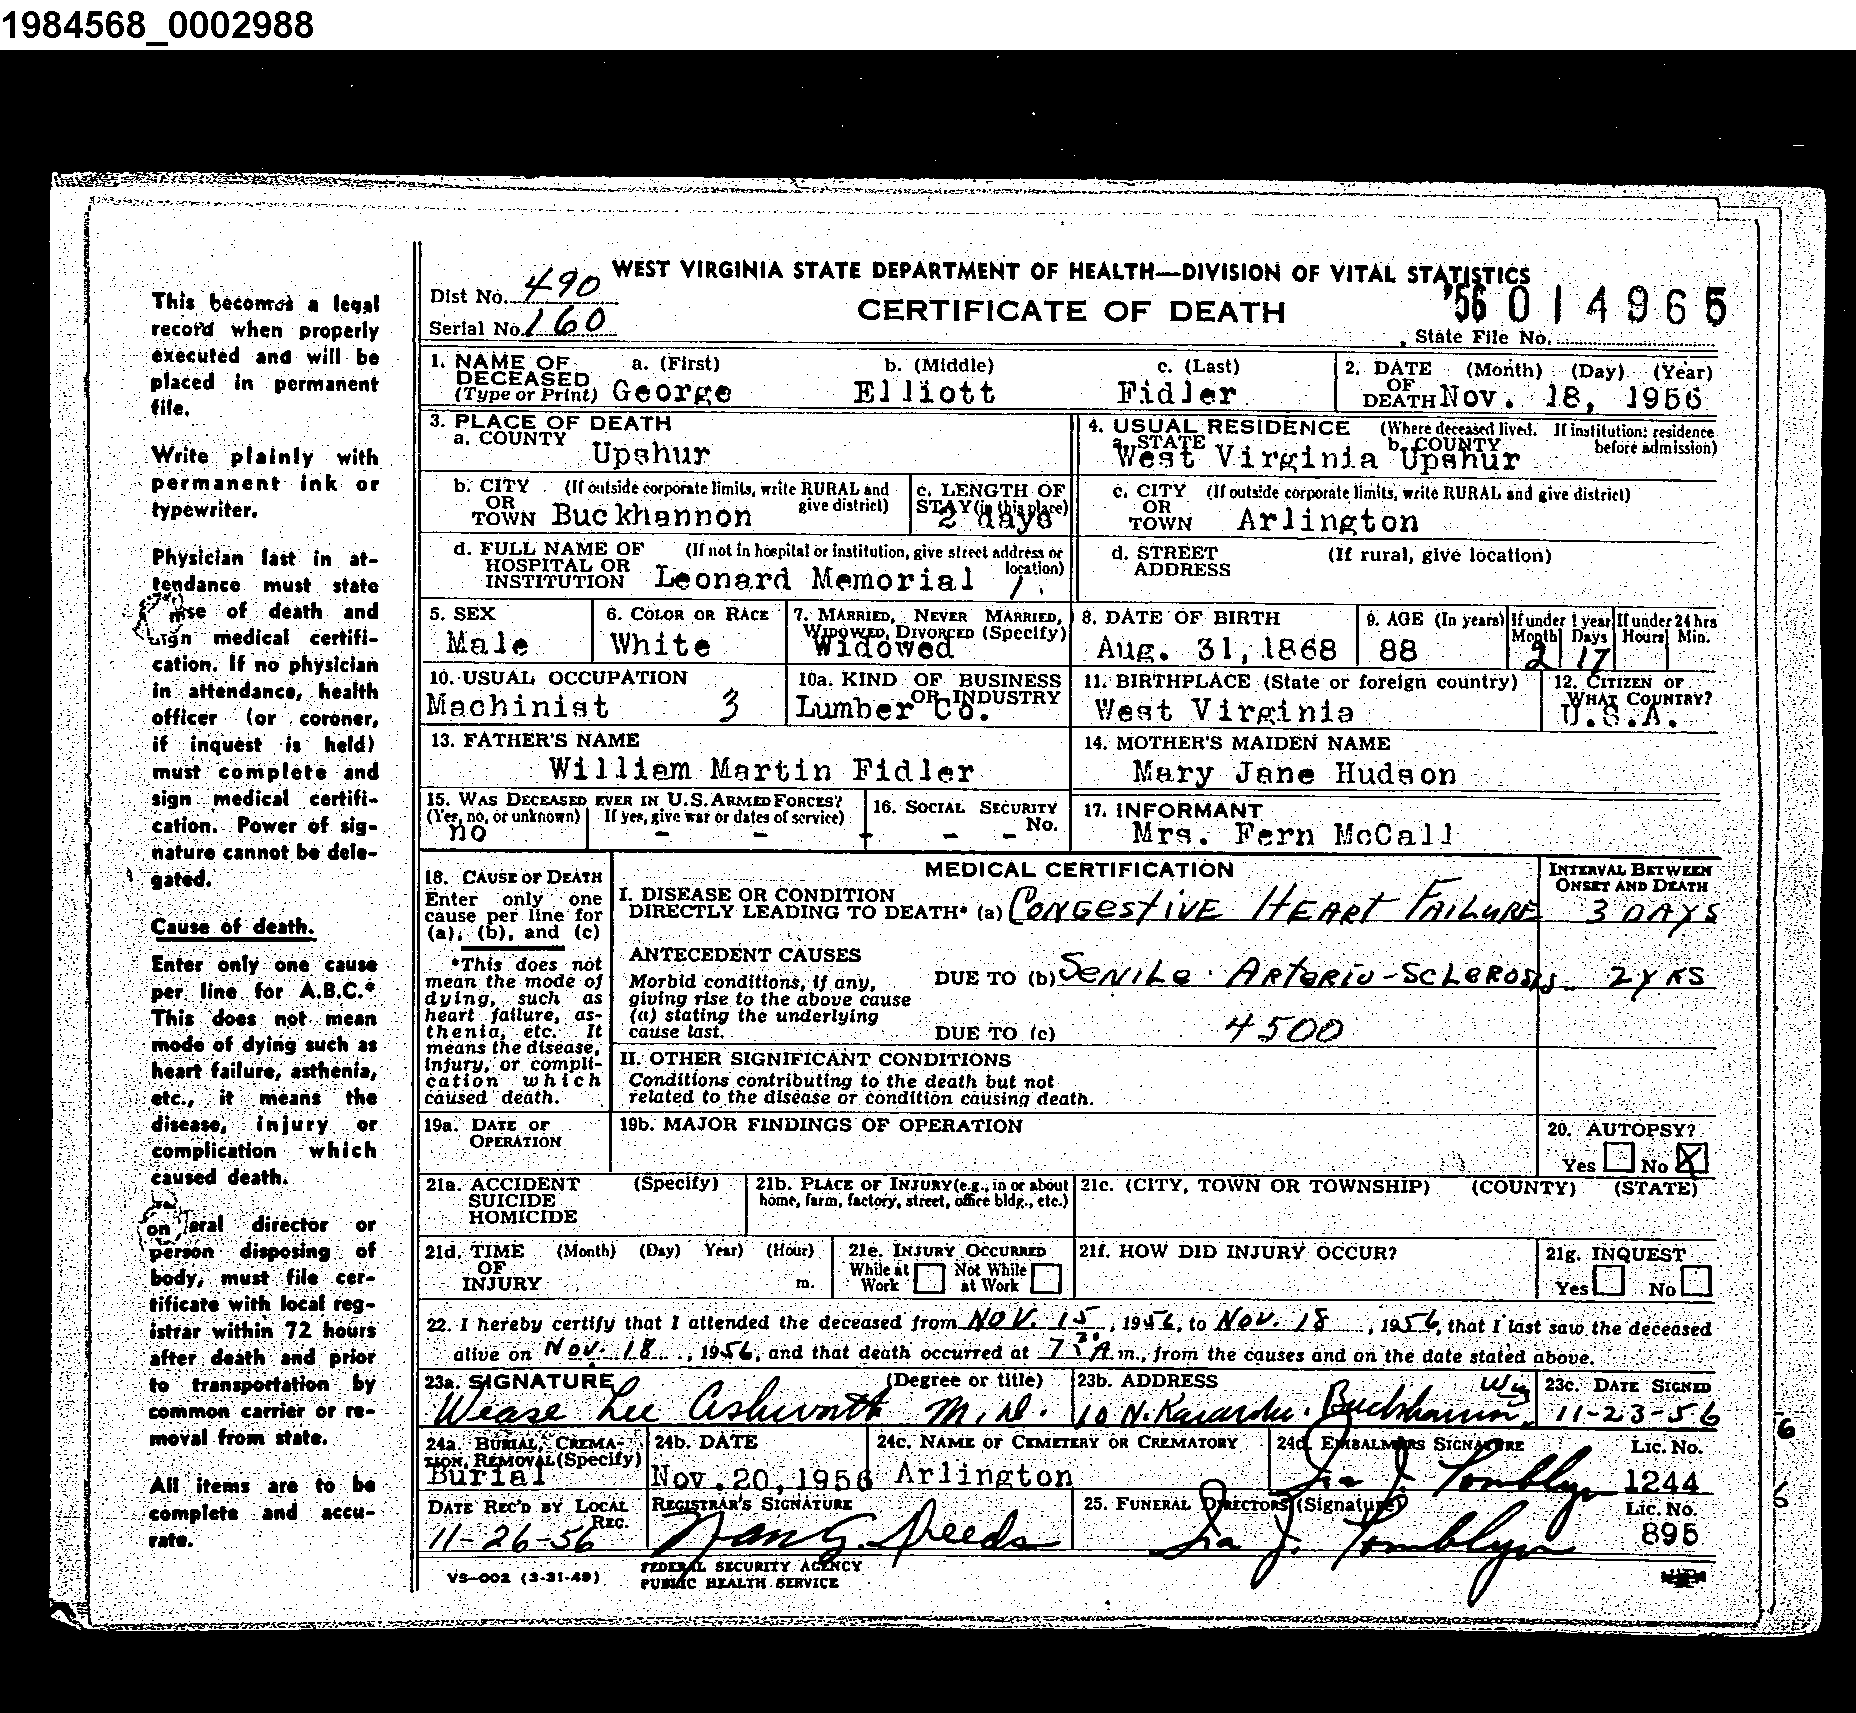 1984568_0002988
This becomes a legal
record when properly
executed and will be
placed in permanent
file.
Write plainly with
permanent ink or
typewriter.
Physician last in at-
tendance must state
use of death and
sign medical certifi-
cation. If no physician
in attendance, health
officer (or coroner,
if inquest is held)
must complete and
sign medical certifi-
cation. Power of sig-
nature cannot be dele-
gated.
Cause of death.
Enter only one cause
per line for A.B.C.*
This does not mean
mode of dying such as
heart failure, asthenia,
etc., it means the
disease, injury or
complication which
caused death.
eral director or
person disposing of
body, must file cer-
tificate with local reg-
istrar within 72 hours
after death and prior
to transportation by
common carrier or re-
moval from state.
All items are to be
complete and accu-
rate.
WEST VIRGINIA STATE DEPARTMENT OF HEALTH—DIVISION OF VITAL STATISTICS
Dist No. 490
CERTIFICATE OF DEATH
'56 014965
Serial No. 160
State File No.
1. NAME OF DECEASED (Type or Print) a. (First) b. (Middle) c. (Last)
George Elliott Fidler
2. DATE OF DEATH (Month) (Day) (Year)
Nov. 18, 1956
3. PLACE OF DEATH
a. COUNTY Upshur
4. USUAL RESIDENCE (Where deceased lived. If institution: residence before admission)
a. STATE West Virginia b. COUNTY Upshur
b. CITY OR TOWN (If outside corporate limits, write RURAL and give district) Buckhannon
c. LENGTH OF STAY (in this place) 2 days
c. CITY OR TOWN (If outside corporate limits, write RURAL and give district) Arlington
d. FULL NAME OF HOSPITAL OR INSTITUTION (If not in hospital or institution, give street address or location) Leonard Memorial 1
d. STREET ADDRESS (If rural, give location)
5. SEX Male
6. COLOR OR RACE White
7. MARRIED, NEVER MARRIED, WIDOWED, DIVORCED (Specify) Widowed
8. DATE OF BIRTH Aug. 31, 1868
9. AGE (In years) 88
If under 1 year Month 2 Days 17
If under 24 hrs Hours Min.
10. USUAL OCCUPATION Machinist 3
10a. KIND OF BUSINESS OR INDUSTRY Lumber Co.
11. BIRTHPLACE (State or foreign country) West Virginia
12. CITIZEN OF WHAT COUNTRY? U.S.A.
13. FATHER'S NAME
William Martin Fidler
14. MOTHER'S MAIDEN NAME
Mary Jane Hudson
15. WAS DECEASED EVER IN U.S. ARMED FORCES?
(Yes, no, or unknown) no If yes, give war or dates of service) - -
16. SOCIAL SECURITY No. - - -
17. INFORMANT
Mrs. Fern McCall
MEDICAL CERTIFICATION
18. CAUSE OF DEATH
Enter only one
cause per line for
(a), (b), and (c)
*This does not
mean the mode of
dying, such as
heart failure, as-
thenia, etc. It
means the disease,
injury, or compli-
cation which
caused death.
I. DISEASE OR CONDITION
DIRECTLY LEADING TO DEATH* (a) CONGESTIVE HEART FAILURE
INTERVAL BETWEEN
ONSET AND DEATH
3 DAYS
ANTECEDENT CAUSES
Morbid conditions, if any,
giving rise to the above cause
(a) stating the underlying
cause last.
DUE TO (b) SENILE ARTERIO-SCLEROSIS 2 YRS
DUE TO (c) 4500
II. OTHER SIGNIFICANT CONDITIONS
Conditions contributing to the death but not
related to the disease or condition causing death.
19a. DATE OF OPERATION
19b. MAJOR FINDINGS OF OPERATION
20. AUTOPSY?
Yes No X
21a. ACCIDENT SUICIDE HOMICIDE (Specify)
21b. PLACE OF INJURY (e.g., in or about home, farm, factory, street, office bldg., etc.)
21c. (CITY, TOWN OR TOWNSHIP) (COUNTY) (STATE)
21d. TIME OF INJURY (Month) (Day) Year) (Hour) m.
21e. INJURY OCCURRED
While at Work Not While at Work
21f. HOW DID INJURY OCCUR?
21g. INQUEST
Yes No
22. I hereby certify that I attended the deceased from NOV. 15, 1956, to NOV. 18, 1956, that I last saw the deceased
alive on NOV. 18, 1956, and that death occurred at 7 30 A.m., from the causes and on the date stated above.
23a. SIGNATURE (Degree or title)
Wease Lee Ashworth M.D.
23b. ADDRESS
10 N. Kanawha. Buckhannon,
23c. DATE SIGNED
11-23-56
24a. BURIAL, CREMATION, REMOVAL (Specify)
Burial
24b. DATE
Nov. 20, 1956
24c. NAME OF CEMETERY OR CREMATORY
Arlington
24d. EMBALMERS SIGNATURE Lic. No.
Ira J. Tomblyn 1244
DATE REC'D BY LOCAL REG.
11-26-56
REGISTRAR'S SIGNATURE
25. FUNERAL DIRECTORS (Signature) Lic. No.
Ira J. Tomblyn 895
VS-002 (3-31-49)
FEDERAL SECURITY AGENCY
PUBLIC HEALTH SERVICE